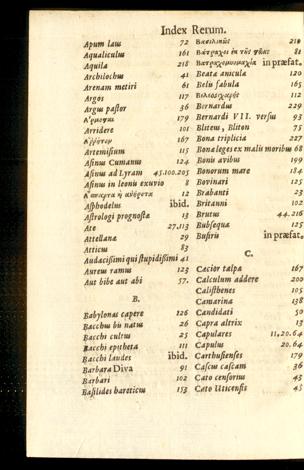 Index Rerum.
Apum laus 72
Aqualiculus 161
Aquila 218
Archilochus 41
Arenam metiri 61
Argos 117
Argus pastor 36
179
Arridere 101
167
Artemisium 115
Asinus Cumanus 124
Asinus ad Lyram 45.100.205
Asinus in leonis exuvio 8
12
Asphodelus ibid.
Astrologi prognosta 13
Ate 27.113
Attellana 29
Atticus 83
Audacissimi qui stupidissimi 41
Aureus ramus 123
Aut bibe aut abi 57.
B.
Babylonas capere 126
Bacchus bis natus 26
Bacchi cultus 25
Bacchi epitheta 111
Bacchi laudes ibid.
Barbara Diva 91
Barbari 102
Basilides hæreticus 153
210
81
in præfat.
Beata anicula 120
Belis fabula 165
112
Bernardus 229
Bernardi VII. versus 93
Blitum, Bliton 75
Bona triplicia 227
Bonæ leges ex malis moribus 68
Bonis avibus 199
Bonorum mare 184
Bovinari 125
Brabanti 23
Britanni 102
Brutus 44.216
Bubsequa 125
Busiris in præfat.
C.
Cæcior talpa 167
Calculum addere 200
Callisthenes 105
Camarina 138
Candidati 50
Capra altrix 13
Capulares 11.20.64
Capulus 20.64
Carthusienses 179
Cascus cascam 36
Cato censorius 45
Cato Uticensis 45